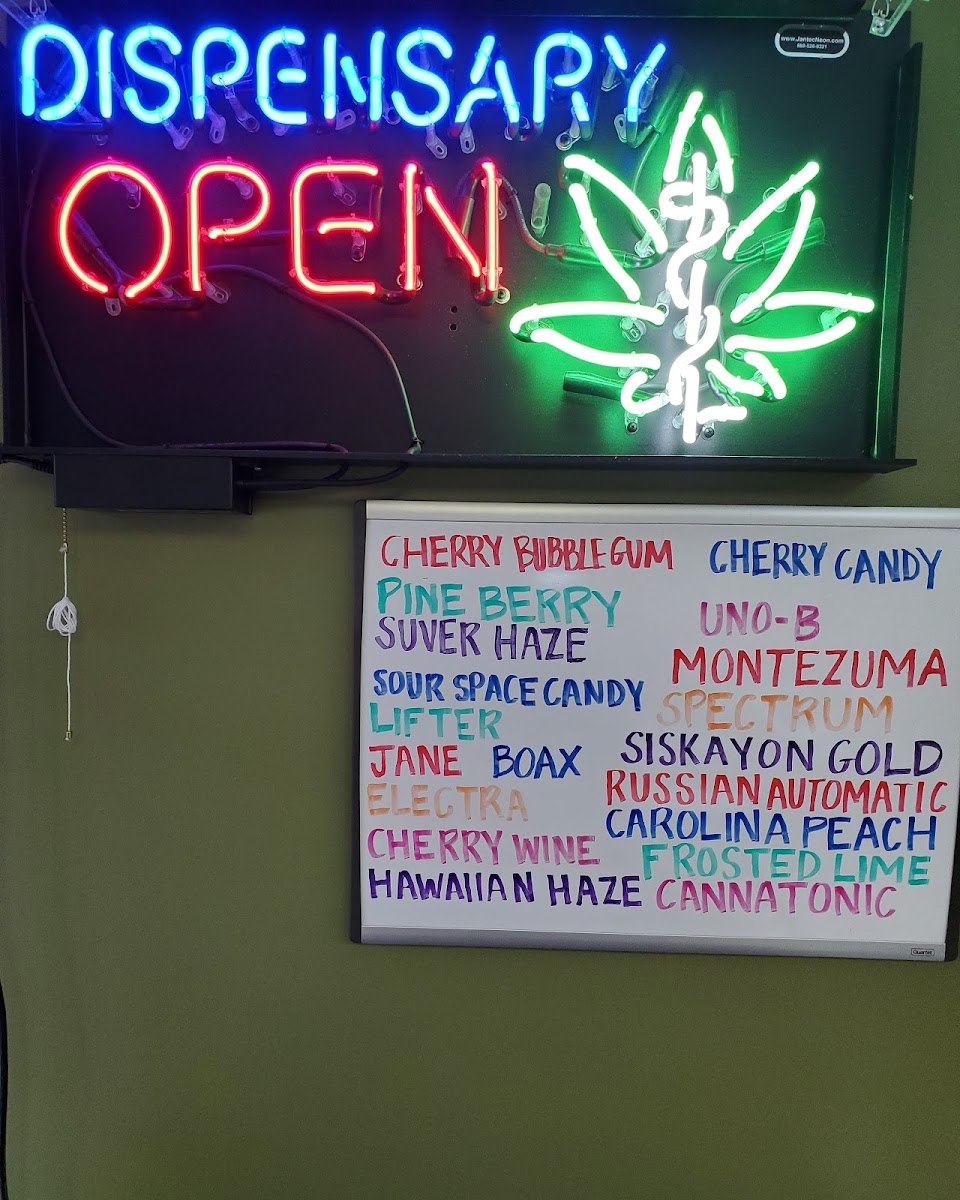 DISPENSARY
www.JantecNeon.com
OPEN
CHERRY BUBBLEGUM
PINE BERRY
SUVER HAZE
SOUR SPACE CANDY
LIFTER
JANE BOAX
ELECTRA
CHERRY WINE
HAWAIIAN HAZE
CHERRY CANDY
UNO-B
MONTEZUMA
SPECTRUM
SISKAYON GOLD
RUSSIAN AUTOMATIC
CAROLINA PEACH
FROSTED LIME
CANNATONIC
Quartet